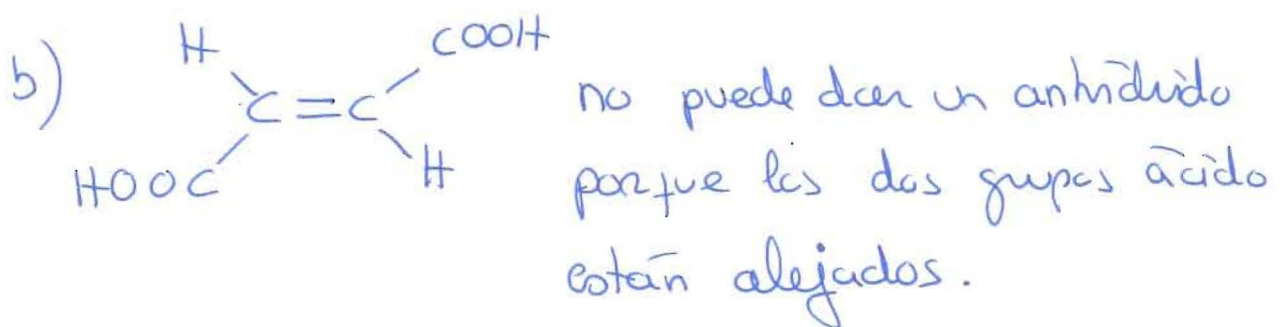 b)
H COOH
C=C
HOOC H
no puede dar un anhídrido
porque los dos grupos ácido
están alejados.